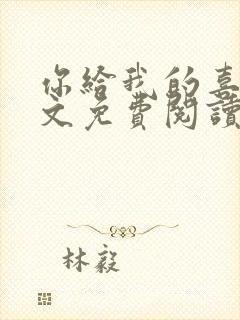 你給我的喜
文免費閱讀
林毅